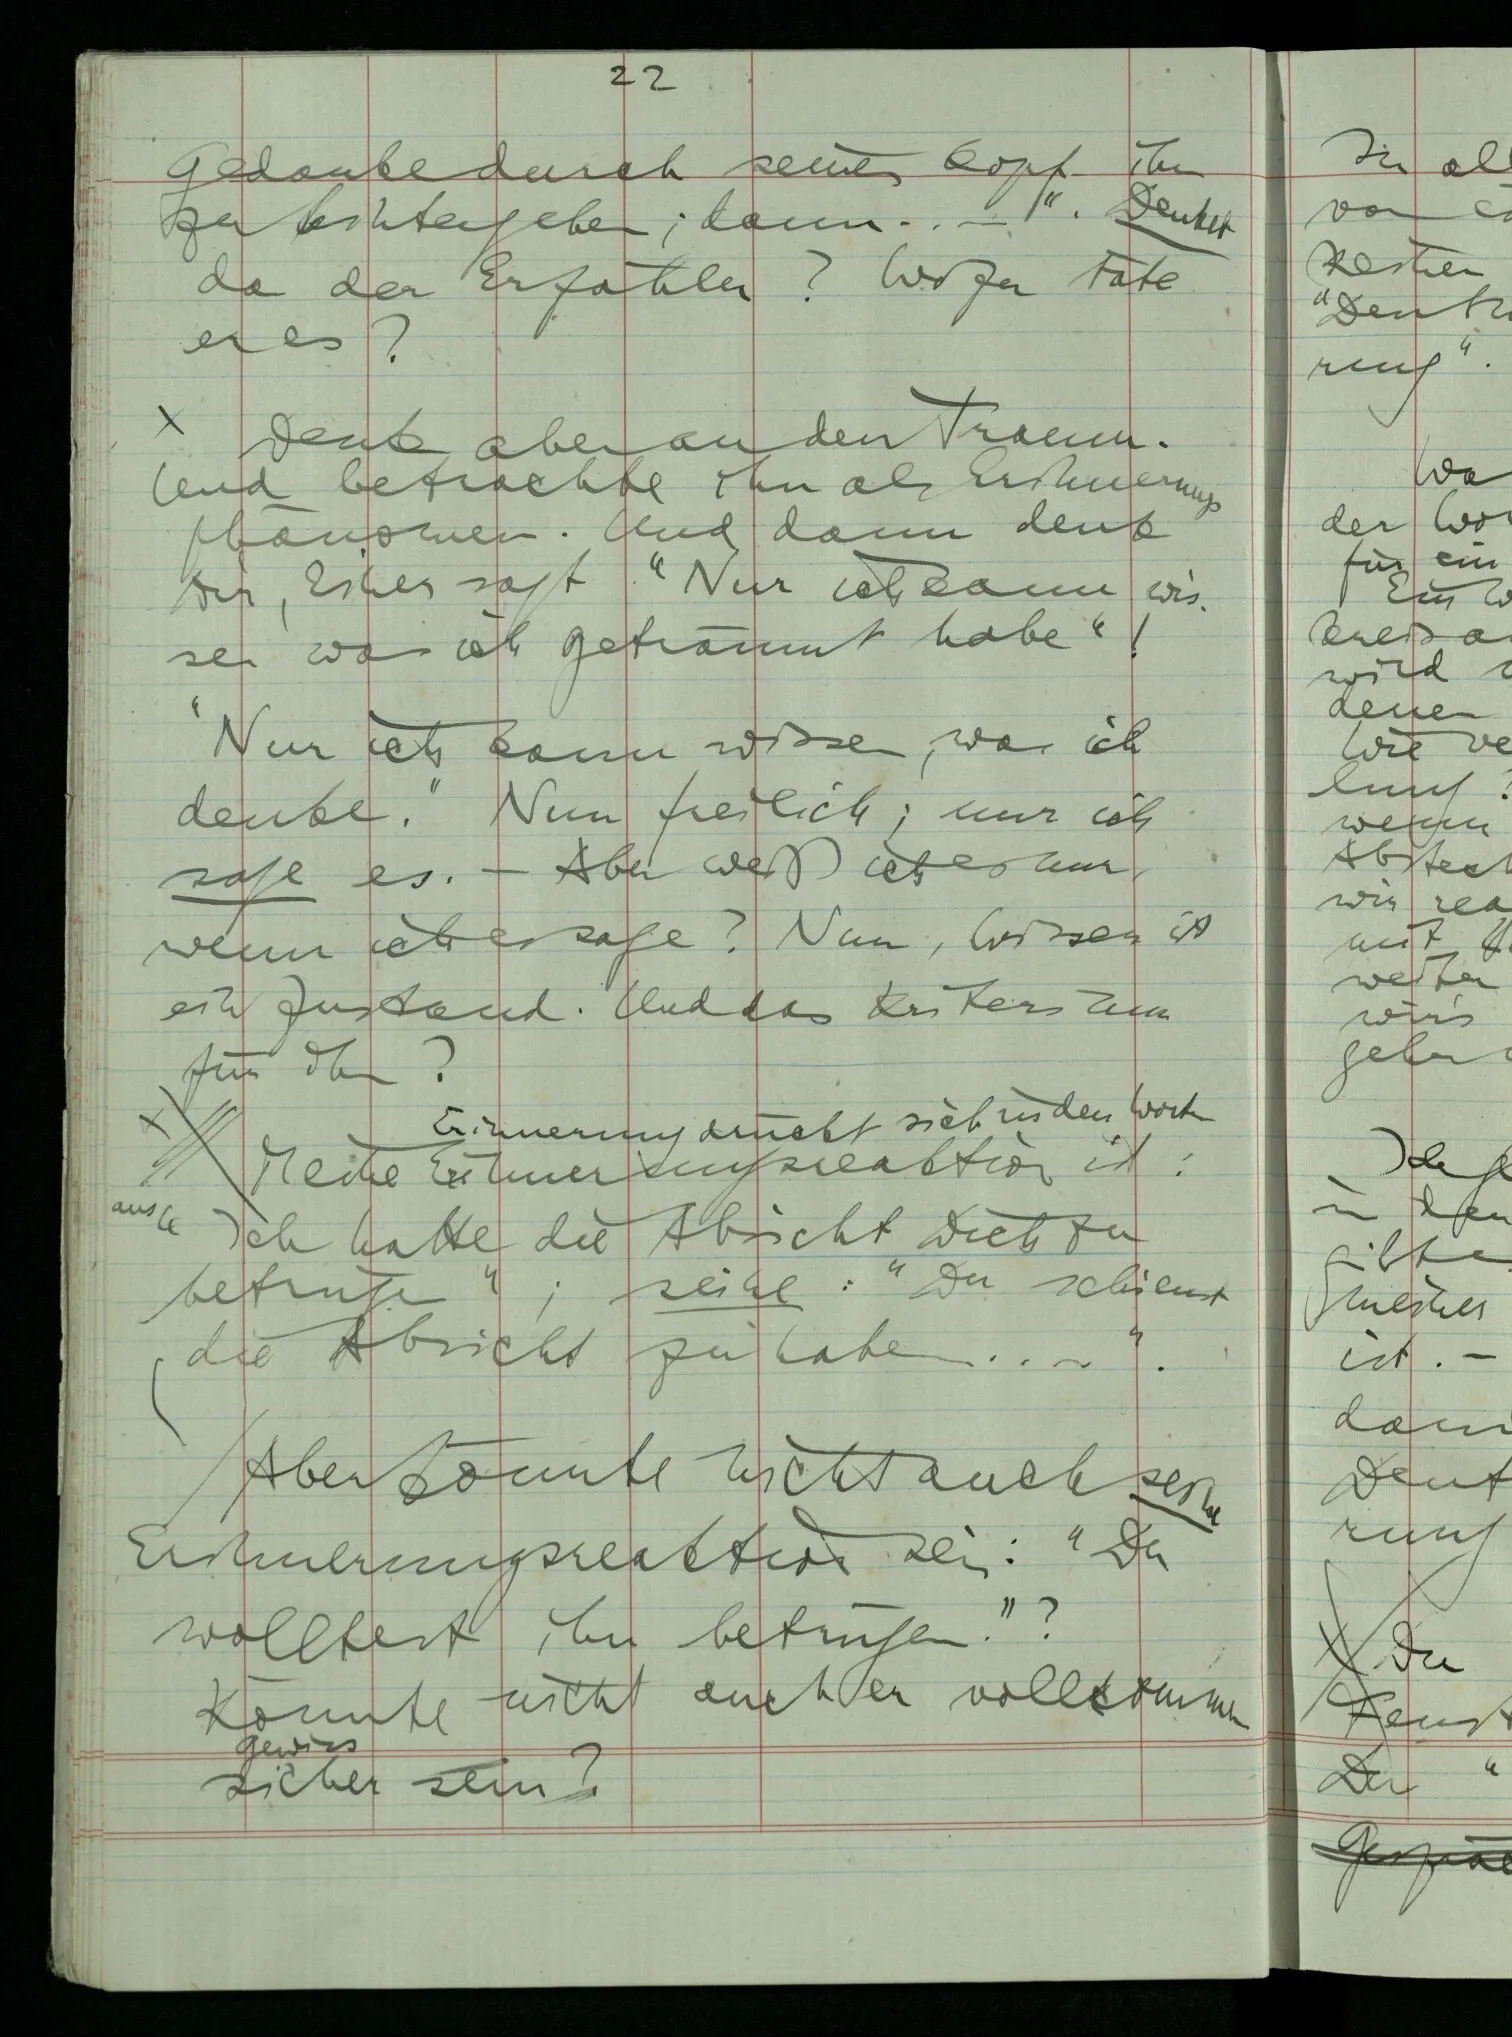 22
Gedanke durch seinen Kopf ihn
zu hintergehen; dann..—". Deutet
da der Erzähler? Wozu täte
er es?
x Denk aber an den Traum.
Und betrachte ihn als Erinnerungs
phänomen. Und dann denk
Dir, Einer sagt "Nur ich kann wis-
sen was ich geträumt habe"!
"Nur ich kann wissen, was ich
denke." Nun freilich; nur ich
sage es. – Aber weiß ich es nur,
wenn ich es sage? Nun, Wissen ist
ein Zustand. Und das Kriterium
für ihn?
x Erinnerung drückt sich in den Worten
Meine Erinnerungsreaktion ist:
aus
"Ich hatte die Absicht Dich zu
betrügen"; seine: "Du schienst
die Absicht zu haben....".
Aber könnte nicht auch seine
Erinnerungsreaktion sein: "Du
wolltest ihn betrügen."?
Könnte nicht auch er vollkommen
gewiss
sicher sein?
In
von
"Denk
rung".
der
für ein
wird
denen
Wie
lung?
wenn
wir
mit
weiter
wir's
geben
in
ist. –
rung
x Du
Der "